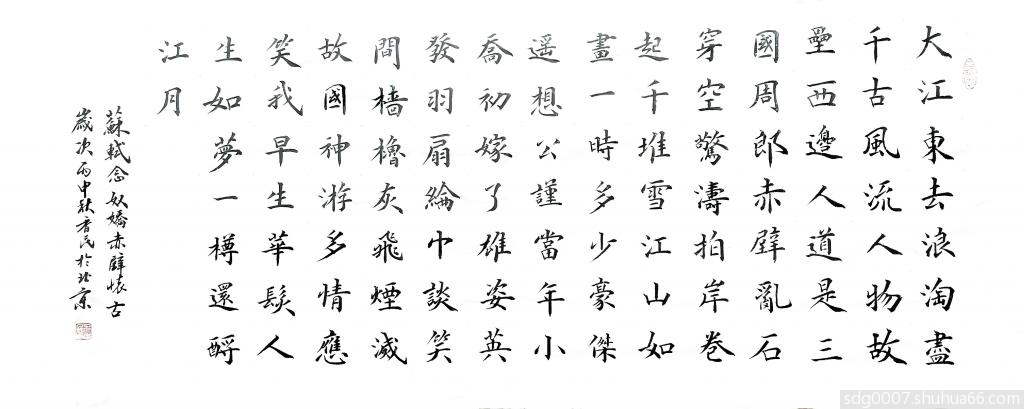 大江東去浪淘盡
千古風流人物故
壘西邊人道是三
國周郎赤壁亂石
穿空驚濤拍岸卷
起千堆雪江山如
畫一時多少豪傑
遥想公謹當年小
喬初嫁了雄姿英
發羽扇綸巾談笑
間檣櫓灰飛煙滅
故國神游多情應
笑我早生華髮人
生如夢一樽還酹
江月
蘇軾念奴嬌赤壁懷古
歲次丙申秋香民於北京
sdg0007.shuhua66.com